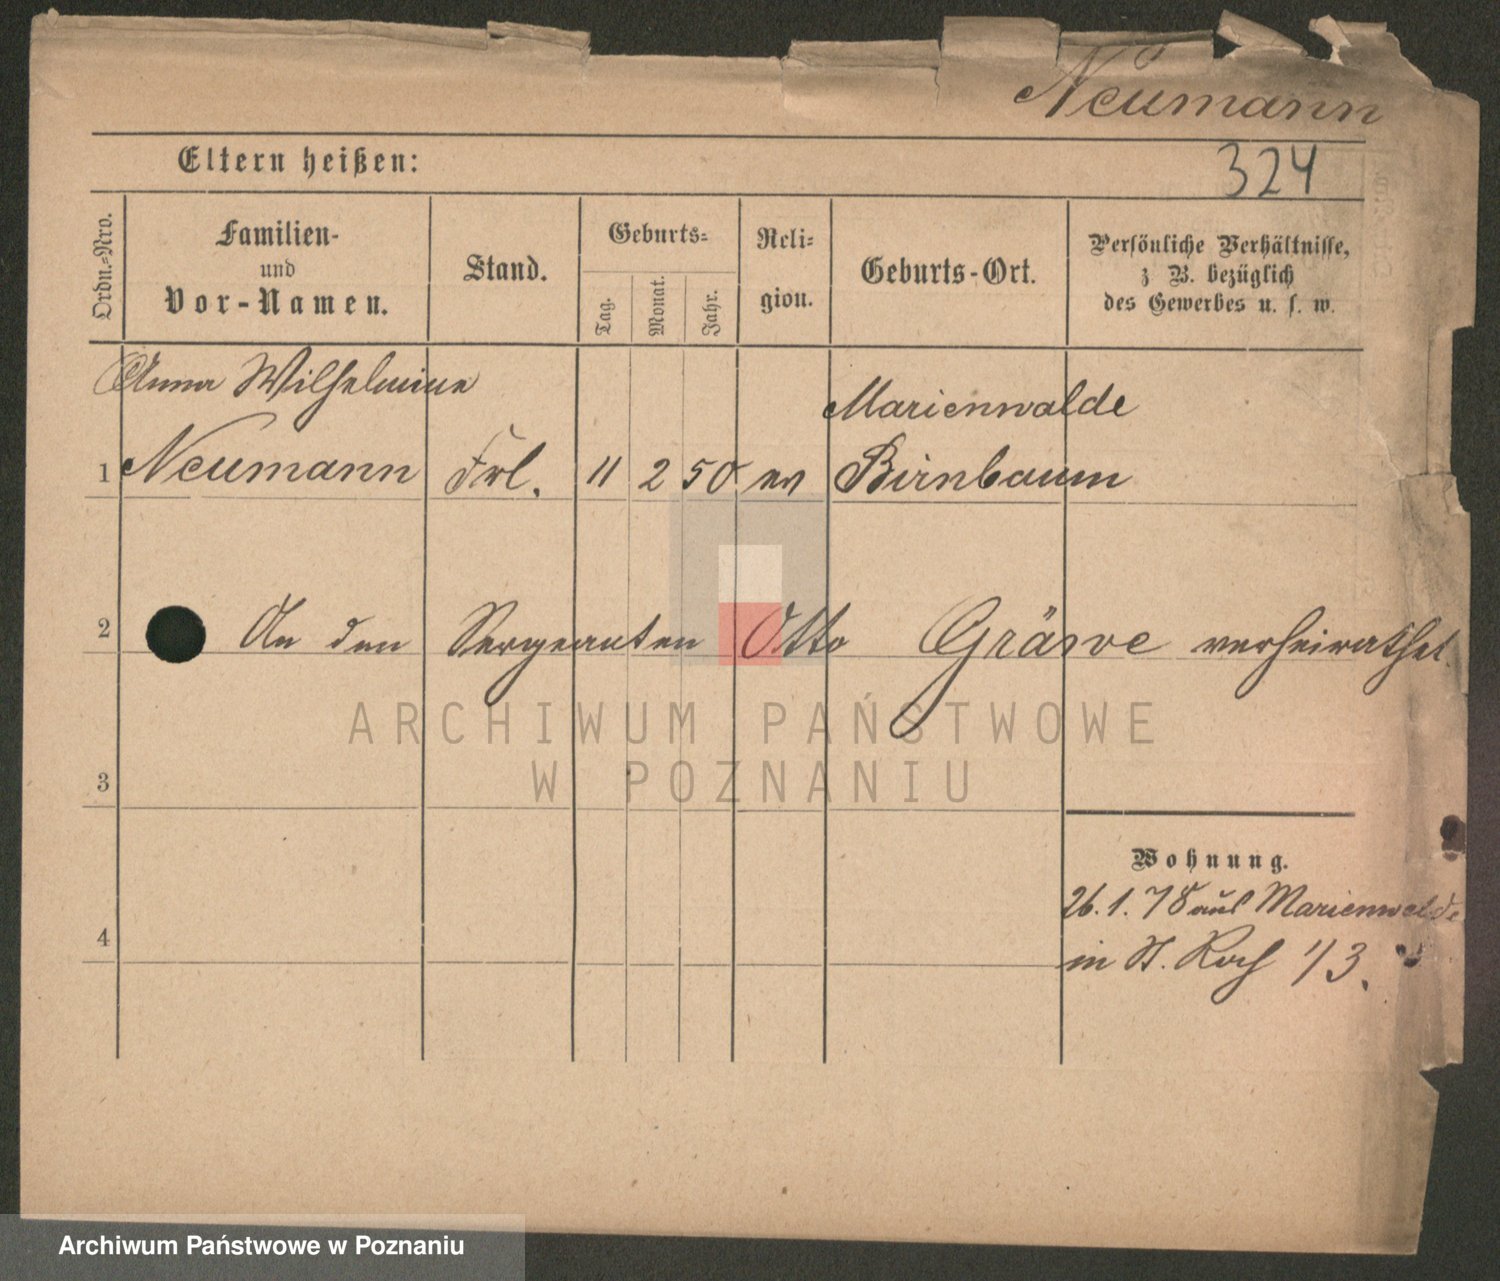 Neumann
Eltern heißen:
324
Ordn.-Nro.
Familien-
und
Vor-Namen.
Stand.
Geburts-
Tag.
Monat.
Jahr.
Reli-
gion.
Geburts-Ort.
Persönliche Verhältnisse,
z B. bezüglich
des Gewerbes u. s. w.
Anna Wilhelmine
Marienwalde
1 Neumann Frl. 11 2 50 ev Birnbaum
2 An den Sergeanten Otto Gräwe verheirathet.
ARCHIWUM PAŃSTWOWE
W POZNANIU
3
Wohnung.
26.1.78 aus Marienwalde
4
in St. Roch 1/3.
Archiwum Państwowe w Poznaniu